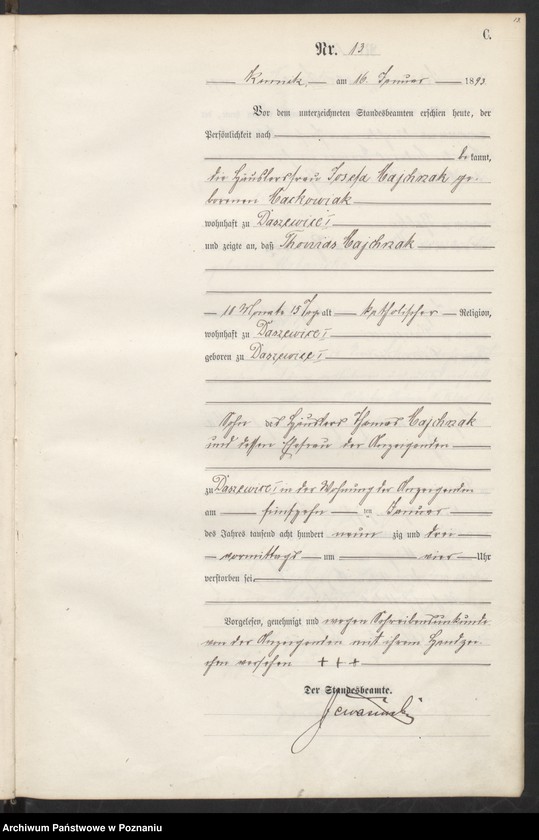 13
C.
Nr. 13
Kurnik, am 16. Januar 1893
Vor dem unterzeichneten Standesbeamten erschien heute, der
Persönlichkeit nach
be kannt,
die Häuslersfrau Josefa Majchrzak ge-
borenen Maćkowiak
wohnhaft zu Daszewice I
und zeigte an, daß Thomas Majchrzak
10 Monate 15 Tage alt katholischer Religion,
wohnhaft zu Daszewice I
geboren zu Daszewice I
Sohn des Häuslers Thomas Majchrzak
und dessen Ehefrau der Anzeigenden
zu Daszewice I in der Wohnung der Anzeigenden
am fünfzehn ten Januar
des Jahres tausend acht hundert neun zig und drei
vormittags um vier Uhr
verstorben sei.
Vorgelesen, genehmigt und wegen Schreibensunkunde
von der Anzeigenden mit ihrem Handzei-
chen versehen +++
Der Standesbeamte.
Archiwum Państwowe w Poznaniu